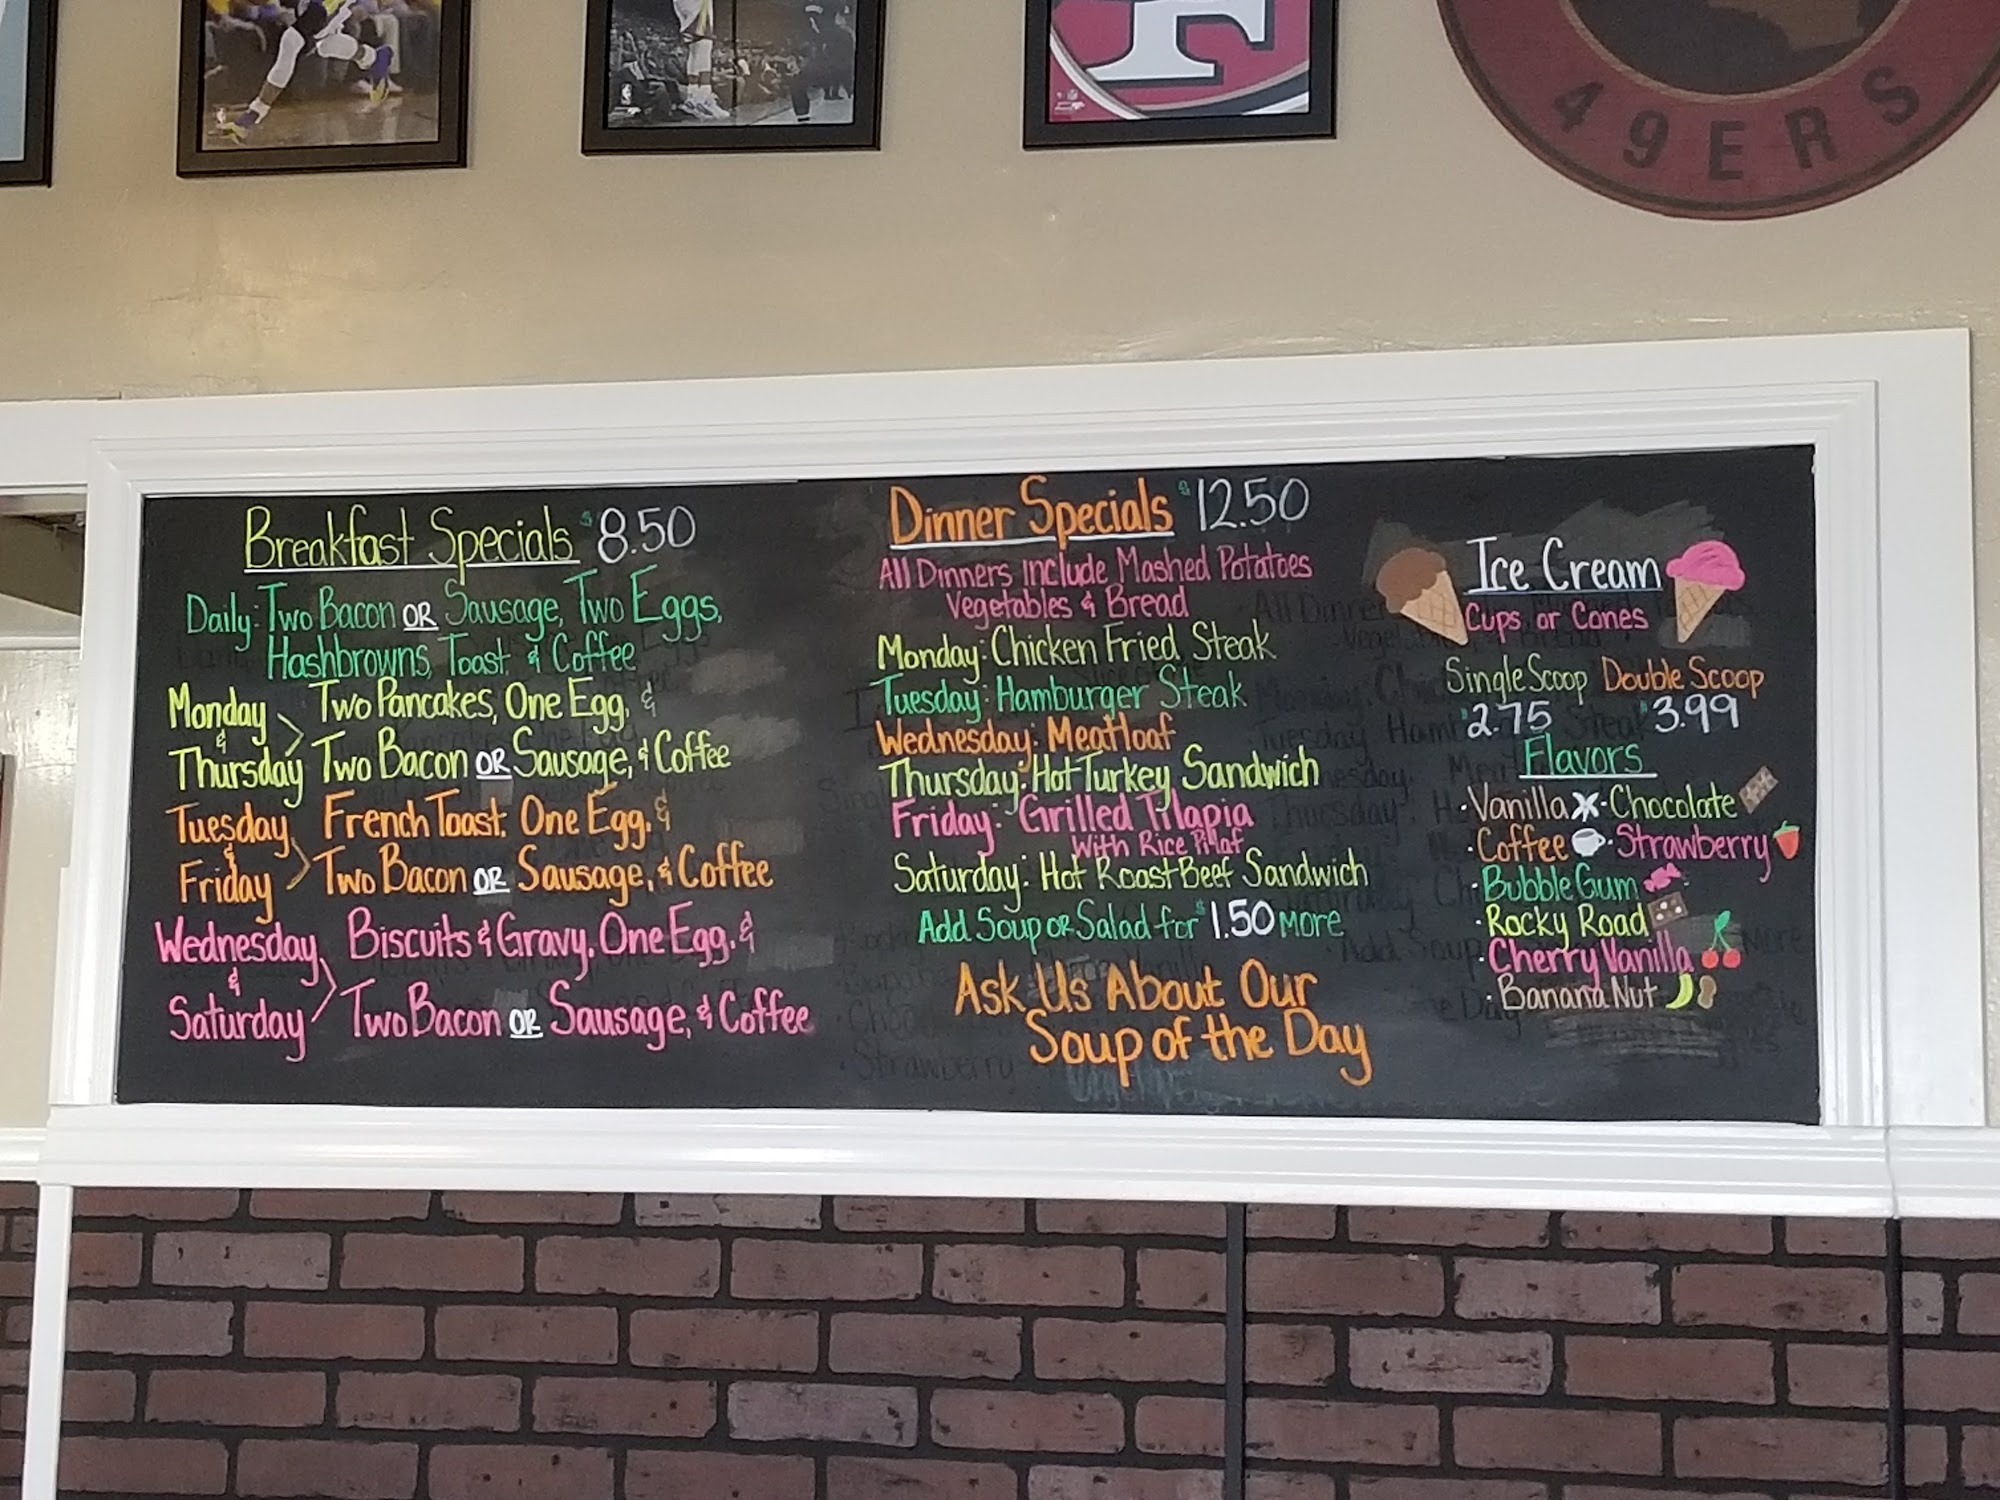 49ERS
Breakfast Specials $8.50
Daily: Two Bacon OR Sausage, Two Eggs,
Hashbrowns, Toast & Coffee
Monday & Thursday
Two Pancakes, One Egg, &
Two Bacon OR Sausage, & Coffee
Tuesday & Friday
French Toast, One Egg, &
Two Bacon OR Sausage, & Coffee
Wednesday & Saturday
Biscuits & Gravy, One Egg, &
Two Bacon OR Sausage, & Coffee
Dinner Specials $12.50
All Dinners Include Mashed Potatoes
Vegetables & Bread
Monday: Chicken Fried Steak
Tuesday: Hamburger Steak
Wednesday: Meatloaf
Thursday: Hot Turkey Sandwich
Friday: Grilled Tilapia
With Rice Pilaf
Saturday: Hot Roast Beef Sandwich
Add Soup or Salad for $1.50 More
Ask Us About Our
Soup of the Day
Ice Cream
Cups or Cones
Single Scoop Double Scoop
$2.75 $3.99
Flavors
·Vanilla ·Chocolate
·Coffee ·Strawberry
·Bubble Gum
·Rocky Road
·Cherry Vanilla
·Banana Nut